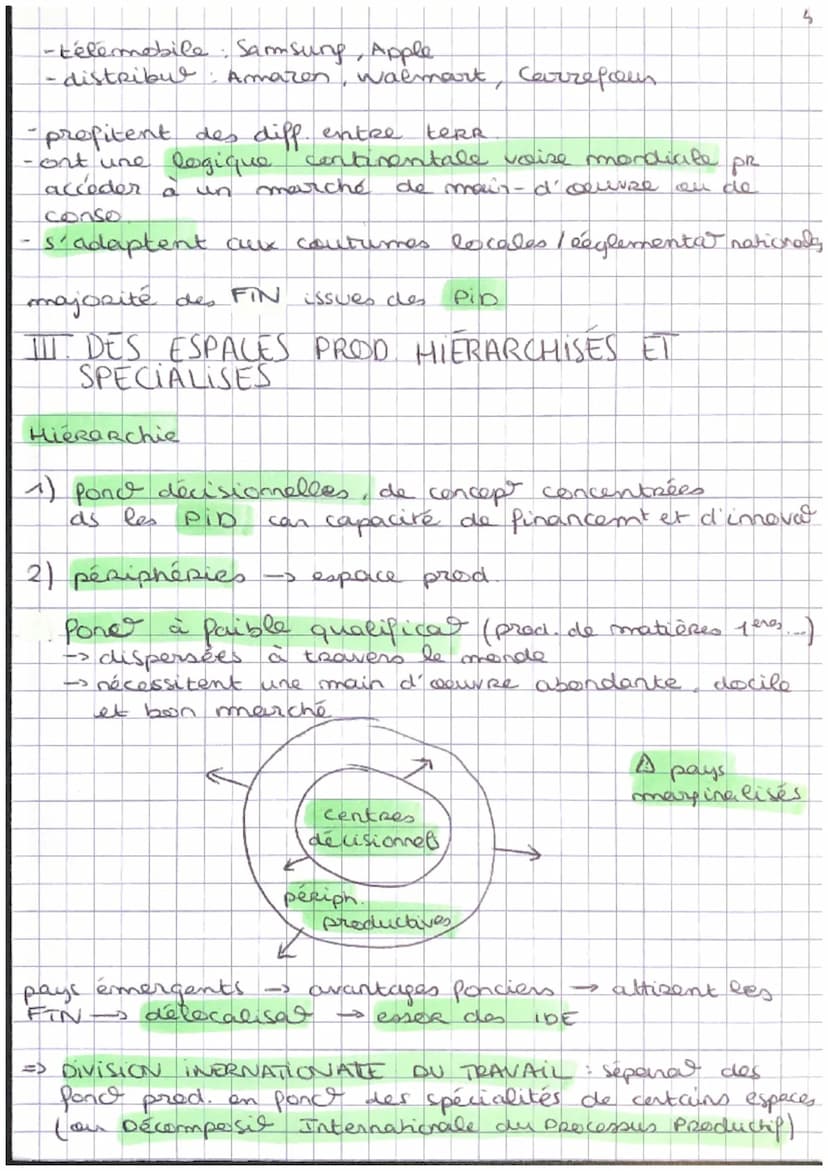 4
- télémobile : Samsung, Apple
- distribu° : Amazon, Walmart, Carrefour
- profitent des diff. entre terr
- ont une logique continentale voire mondiale pr
accéder à un marché de main-d'œuvre ou de
conso.
- s'adaptent aux coutumes locales / réglementa° nationales
majorité des FTN issues des PID
III. DES ESPACES PROD. HIÉRARCHISÉS ET
SPÉCIALISÉS
Hiérarchie
1) fonc° décisionnelles, de concep° concentrées
ds les PID car capacité de financemt et d'innova°
2) périphéries → espace prod.
fonc° à faible qualifica° (prod. de matières 1ères...)
→ dispersées à travers le monde
→ nécessitent une main d'œuvre abondante, docile
et bon marché
⚠ pays
marginalisés
centres
décisionnels
périph.
productives
pays émergents → avantages fonciers → attirent les
FTN → délocalisa° → essor des IDE
=> DIVISION INERNATIONATE DU TRAVAIL : sépara° des
fonc° prod. en fonc° des spécialités de certains espaces
(ou Décomposi° Internationale du Processus Productif)